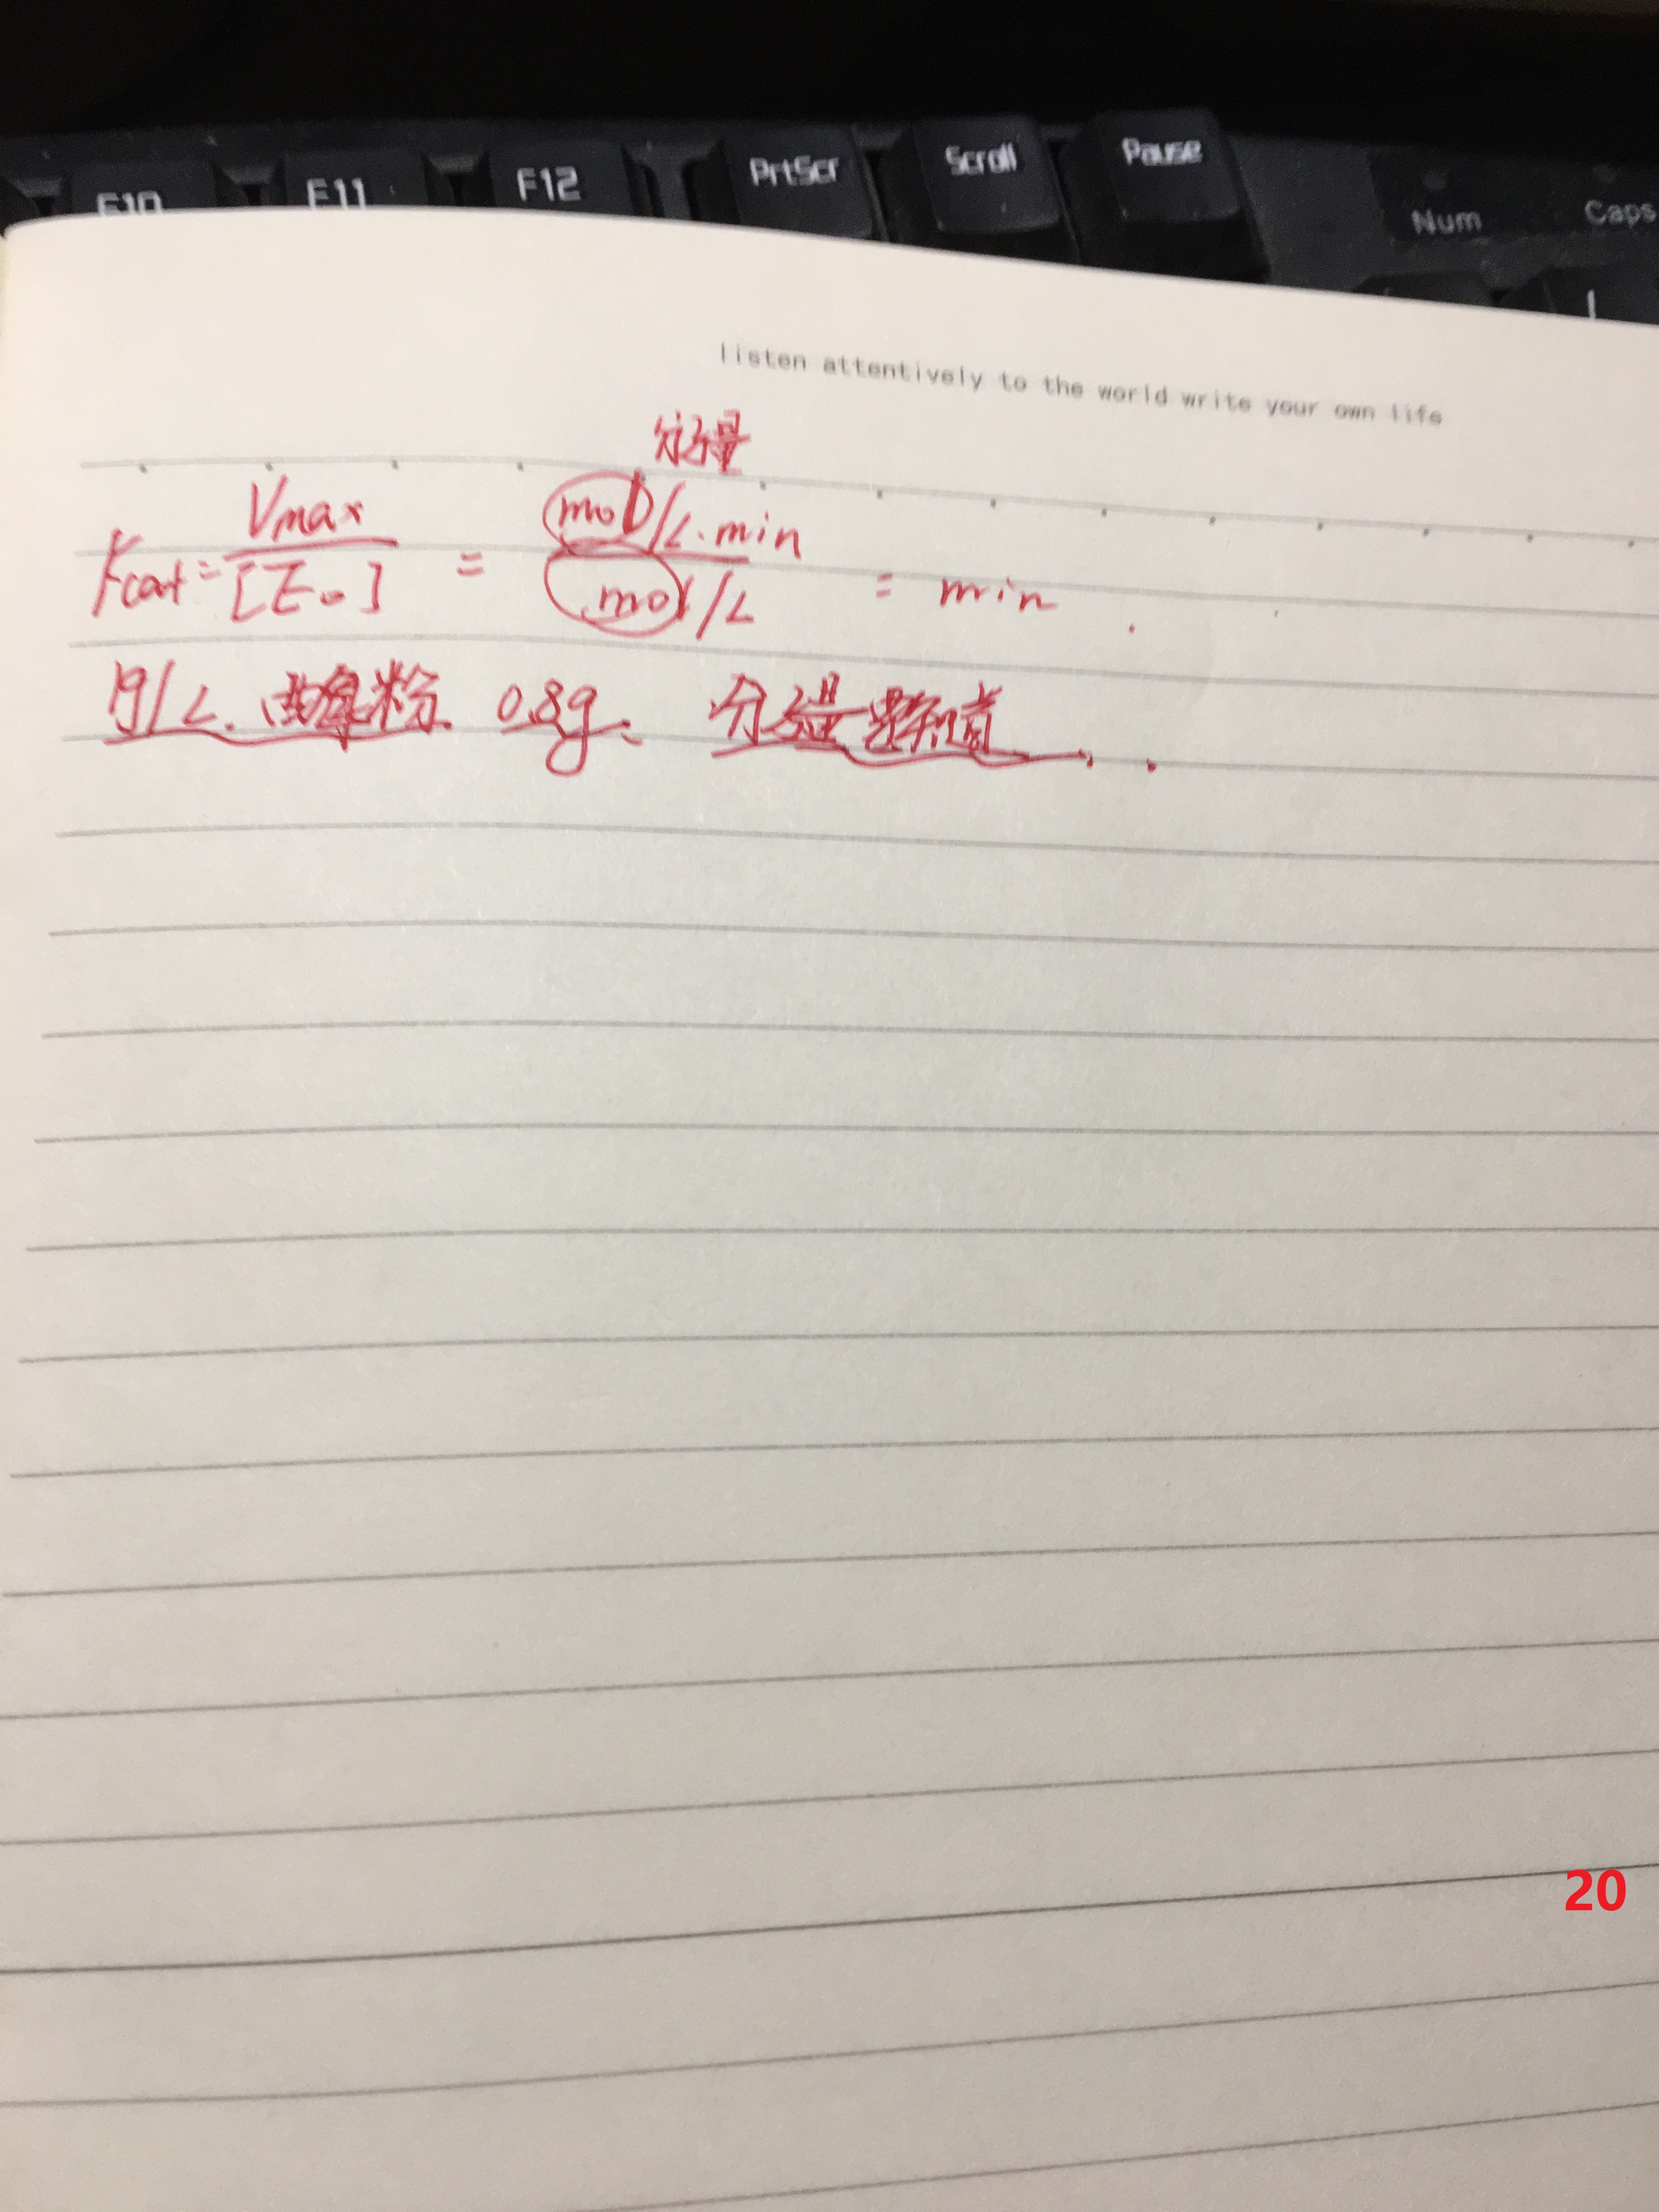 F10 F11 F12 PrtScr Scroll Pause
Num Caps
listen attentively to the world write your own life
分子量
Kcat = Vmax / [E0] = mol/L·min / mol/L = min
1g/L. 酶粉. 0.8g. 分子量 知道
20